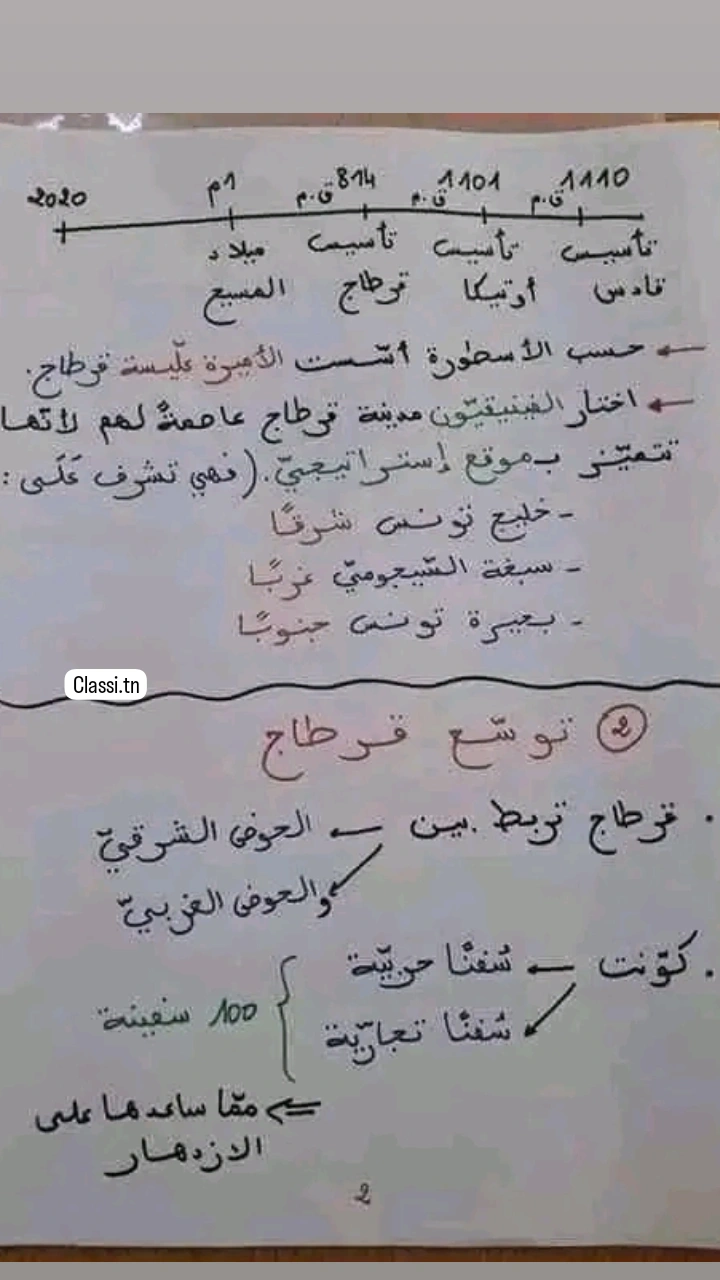 2020 1م 814 ق.م 1101 ق.م 1110 ق.م
تأسيس تأسيس تأسيس ميلاد
قادس أوتيكا قرطاج المسيح
← حسب الأسطورة أسّست الأميرة علّيسة قرطاج.
← اختار الفينيقيّون مدينة قرطاج عاصمةً لهم لأنّها
تتميّز بموقع إستراتيجيّ. (فهي تشرف عَلَى :
- خليج تونس شرقًا
- سبخة السّيجوميّ غربًا
- بحيرة تونس جنوبًا
Classi.tn
② توسّع قرطاج
. قرطاج تربط بين ← الحوض الشرقيّ
والحوض الغربيّ
. كوّنت ← سُفنًا حربيّة
سُفنًا تجاريّة } 100 سفينة
⇐ ممّا ساعدها على
الازدهار
2